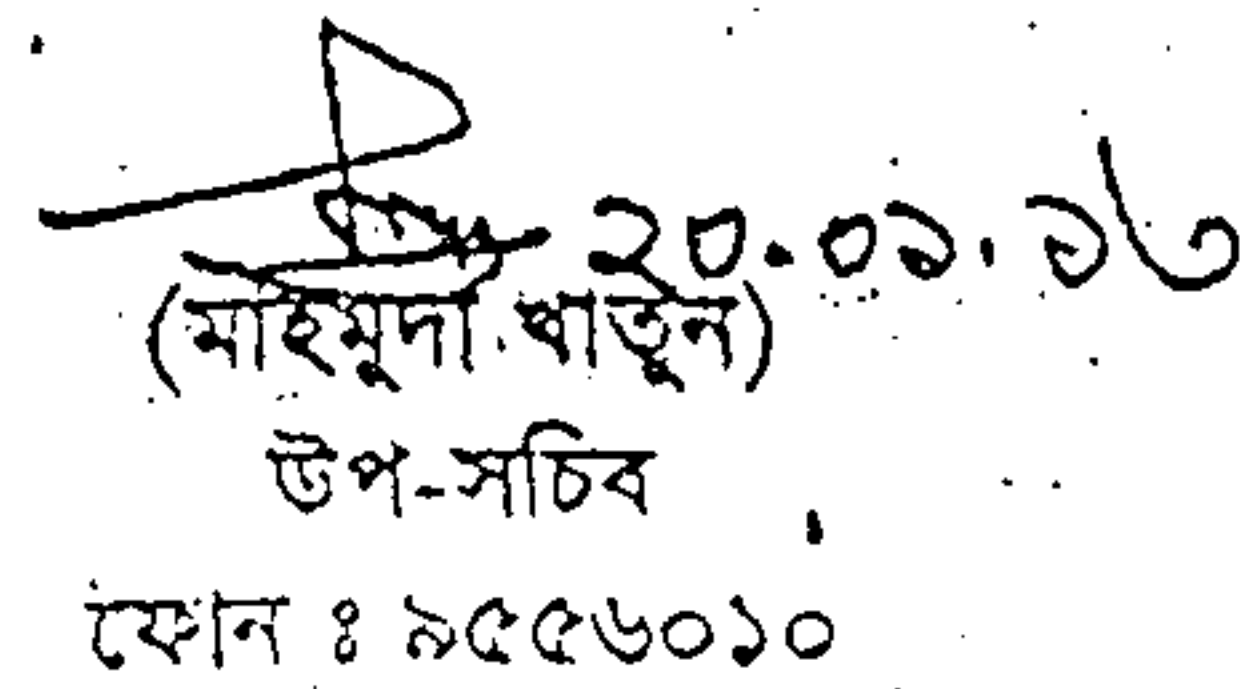 ২০.০১.১৬
(মাহমুদা খাতুন)
উপ-সচিব
ফোন : ৯৫৫৬০১০